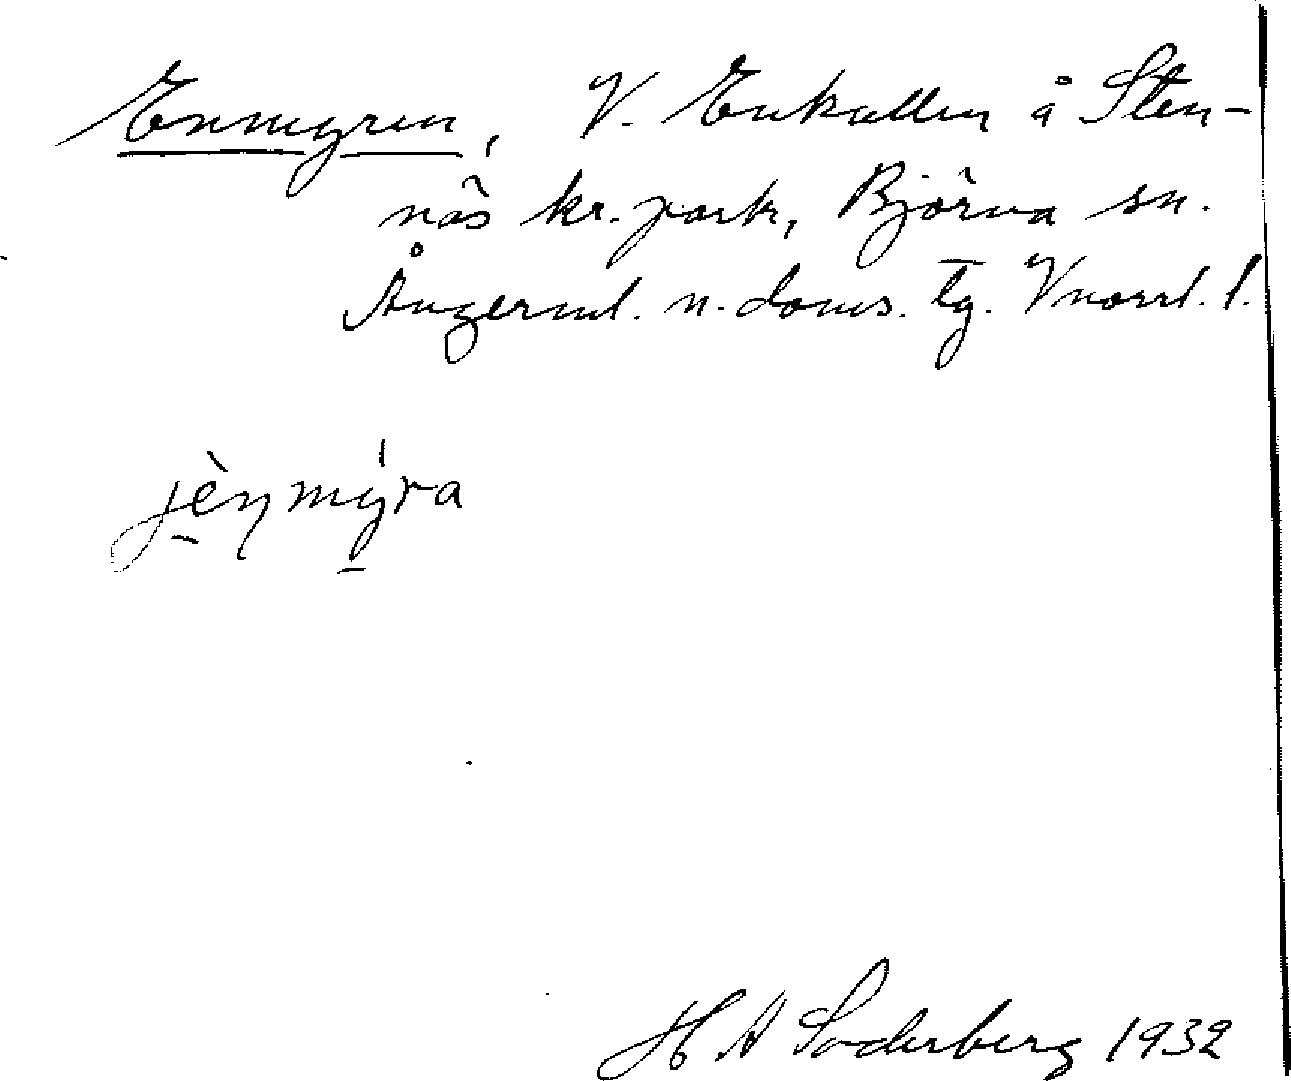 Enmyren, V. Enkullen å Sten-
näs kr. park, Björna sn.
Ångerml. n. doms. tg. Vnorrl. l.
jènmýra
H A Söderberg 1932